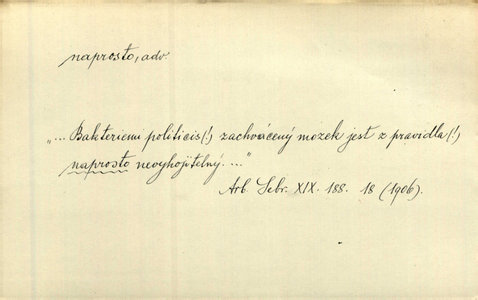 naprosto, adv.
„... Bakteriemi politicis(!) zachvácený mozek jest z pravidla(!)
naprosto nevyhojitelný. ..."
Arb. Sebr. XIX. 188. 18 (1906).